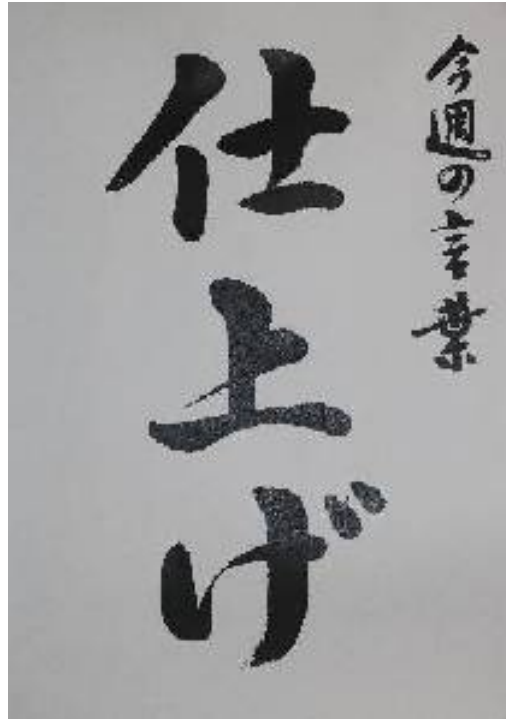 今週の言葉
仕上げ